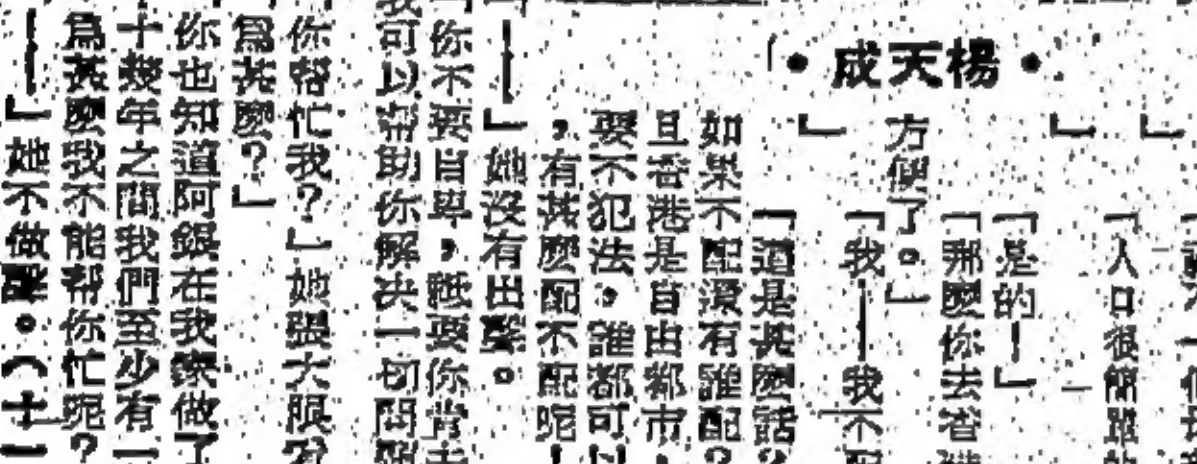 •楊天成•
「人口很簡單
」
「是的—」
「那麼你去香港
方便了。」
「我——我不配
」
「這是甚麼話?
如果不配還有誰配?
且香港是自由都市,
要不犯法,誰都可以
,有甚麼配不配呢!
——」她沒有出聲。
「你不要自卑,祗要你肯去
我可以幫助你解決一切問題
你幫忙我?」她張大眼
爲甚麼?」
你也知道阿銀在我家做了
十幾年之間我們至少有一
爲甚麼我不能帮你忙呢?
——」她不做聲。(十一